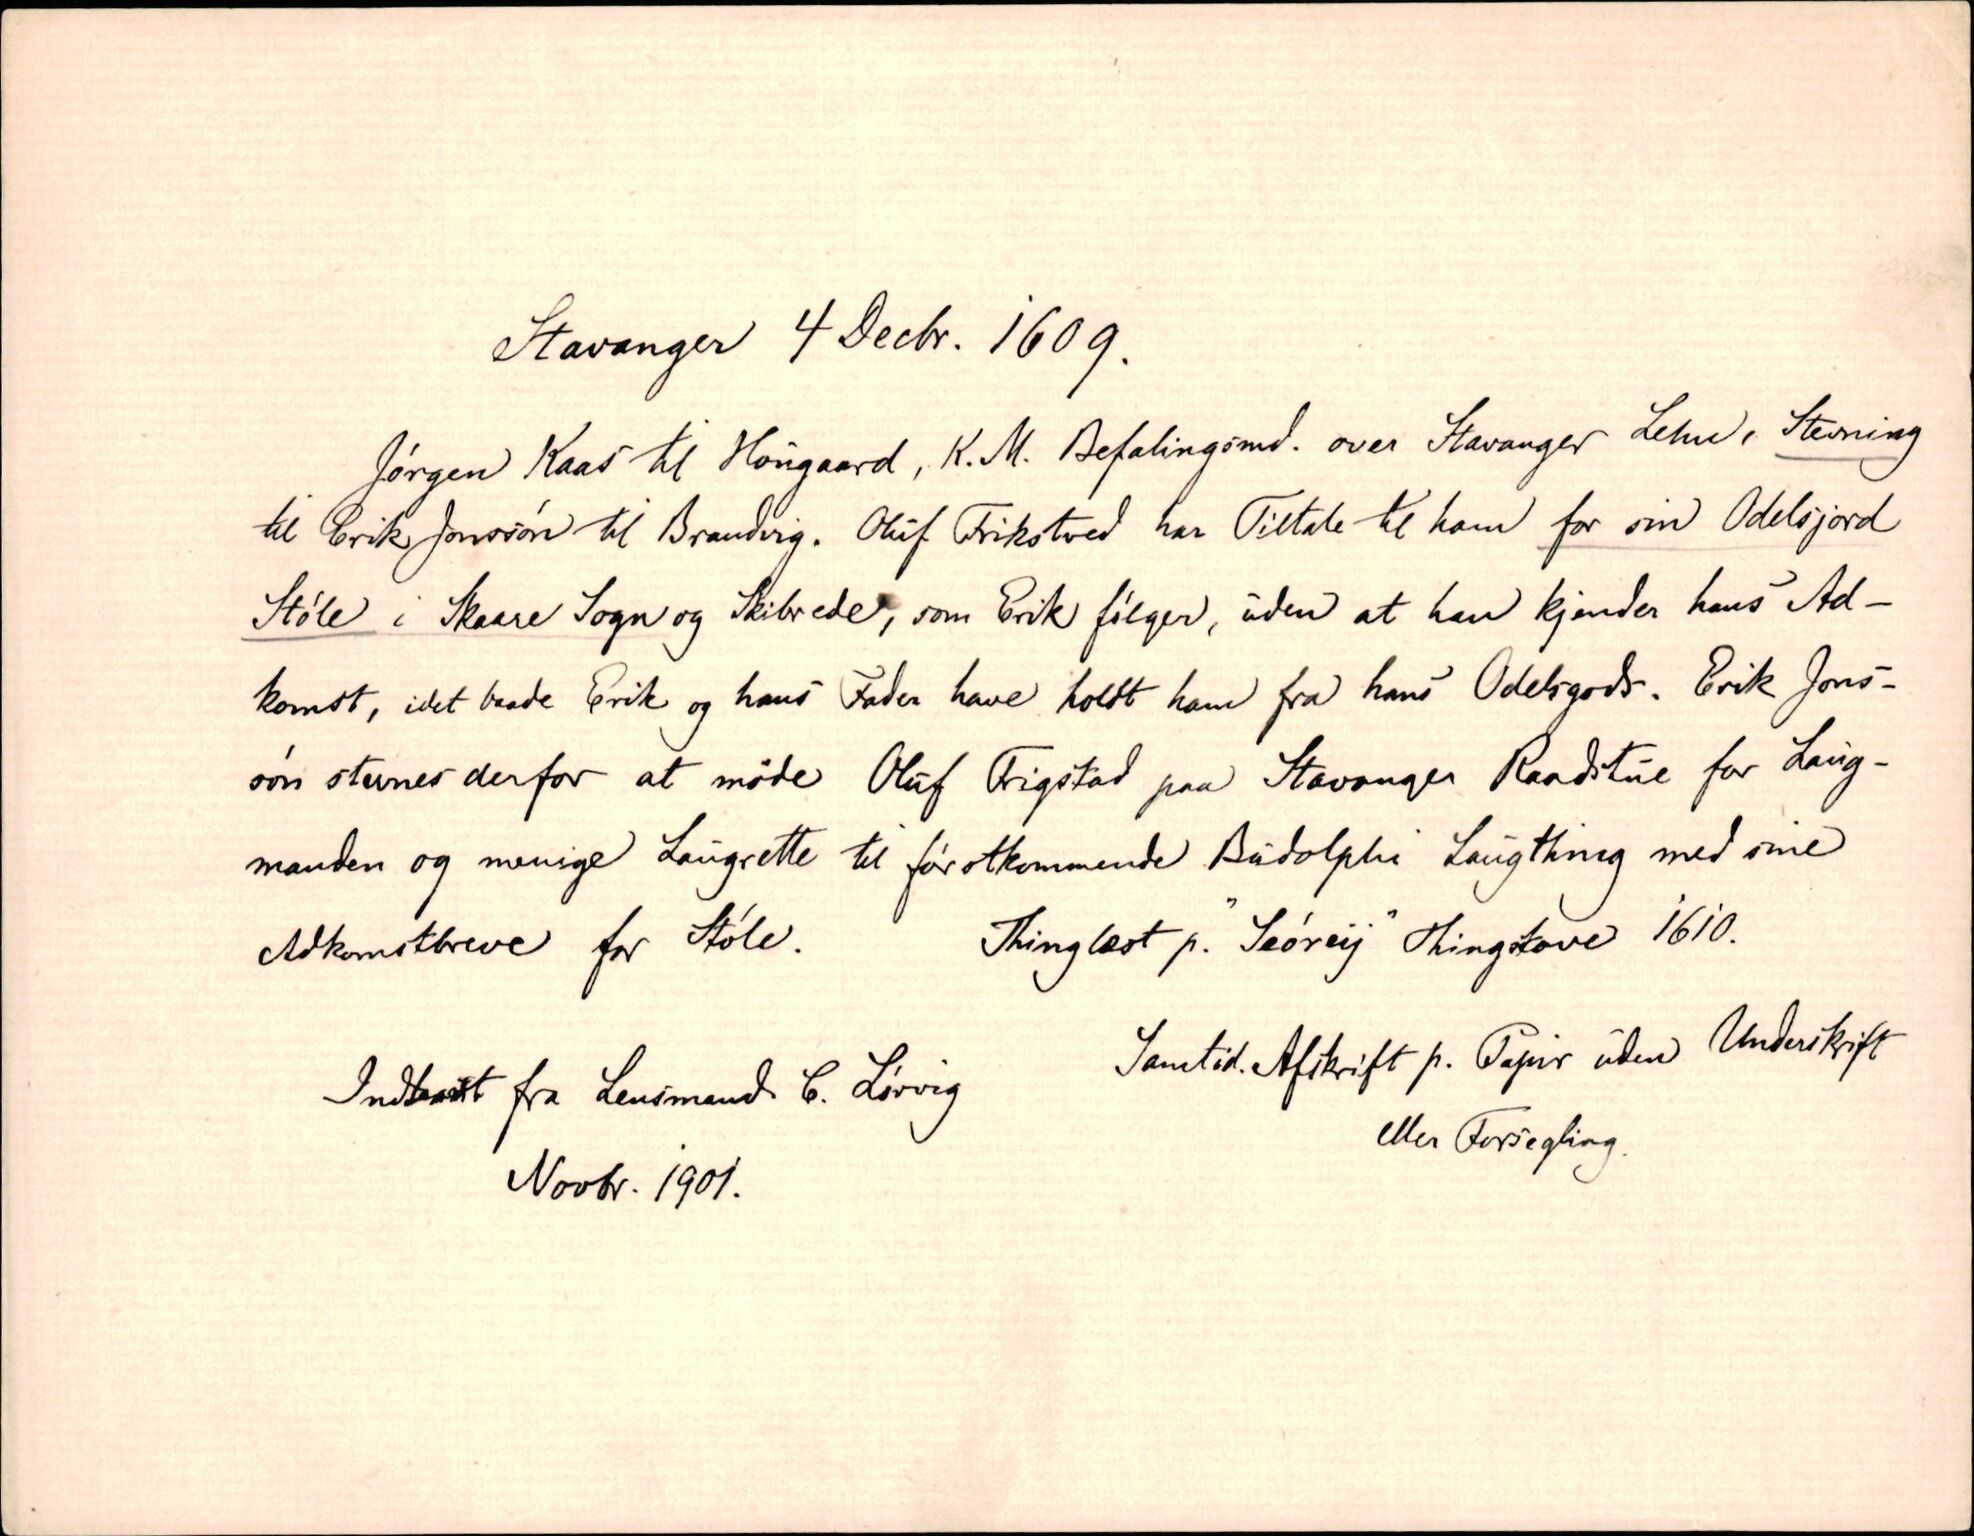 Stavanger 4 Decbr. 1609.
Jórgen Kaas til Hougaard, K. M. Befalingsmd. over Stavanger Lehn, Stevning
til Erik Jonssón til Brandvig. Oluf Frikstved har Tiltale til ham for sin Odelsjord
Stóle i Skaare Sogn og Skibrede, som Erik fólger, uden at han kjender hans Ad-
komst, idet baade Erik og hans Fader have holdt ham fra hans Odelsgods. Erik Jons-
són stevnes derfor at móde Oluf Frigstad paa Stavanger Raadstue for Laug-
manden og menige Laugrette til fórstkommende Budolphi Laugthing med sine
Adkomstbreve for Stóle. Thinglæst p. "Seóreij" Thingstove 1610.
Samtid. Afskrift p. Papir uden Underskrift
eller Forsegling.
fra Lensmand C. Lórvig
Novbr. 1901.